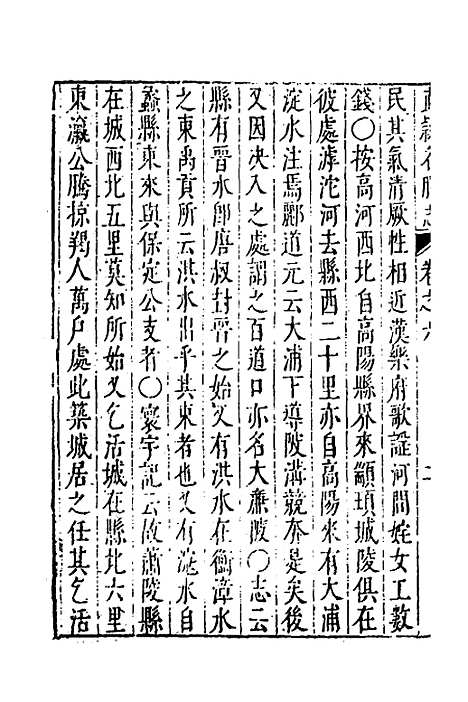 直隸名勝志 卷之六 二
民其氣清厥性相近漢樂府歌謡河間姹女工數
錢〇按高河西北自高陽縣界來顓頊城陵俱在
彼處滹沱河去縣西二十里亦自高陽來有大浦
淀水注焉酈道元云大浦下導陂溝競奔是矣後
又因决入之處謂之百道口亦名大蕪陂〇志云
縣有晋水卽唐叔封晉之始又有洪水在衡漳水
之東禹貢所云洪水出乎其東者也又有淀水自
蠡縣東來與保定公支者〇寰宇記云故蕭陵縣
在城西北五里莫知所始又乞活城在縣北六里
東瀛公騰掠羯人萬户處此築城居之任其乞活